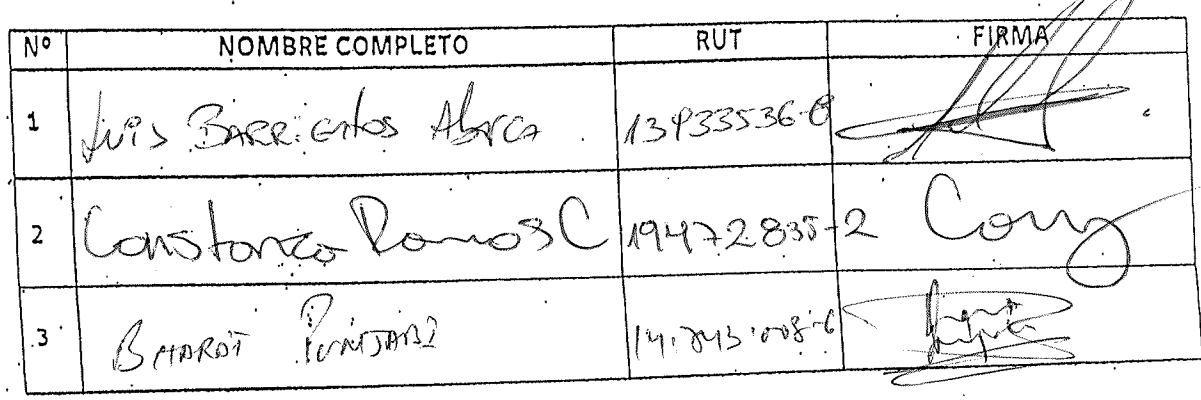 Nº NOMBRE COMPLETO RUT FIRMA
1 Luis BARRiENtos Abarca 13933536-8
2 Constanza Ramos C 19472835-2
3 BHARAT PUNJABI